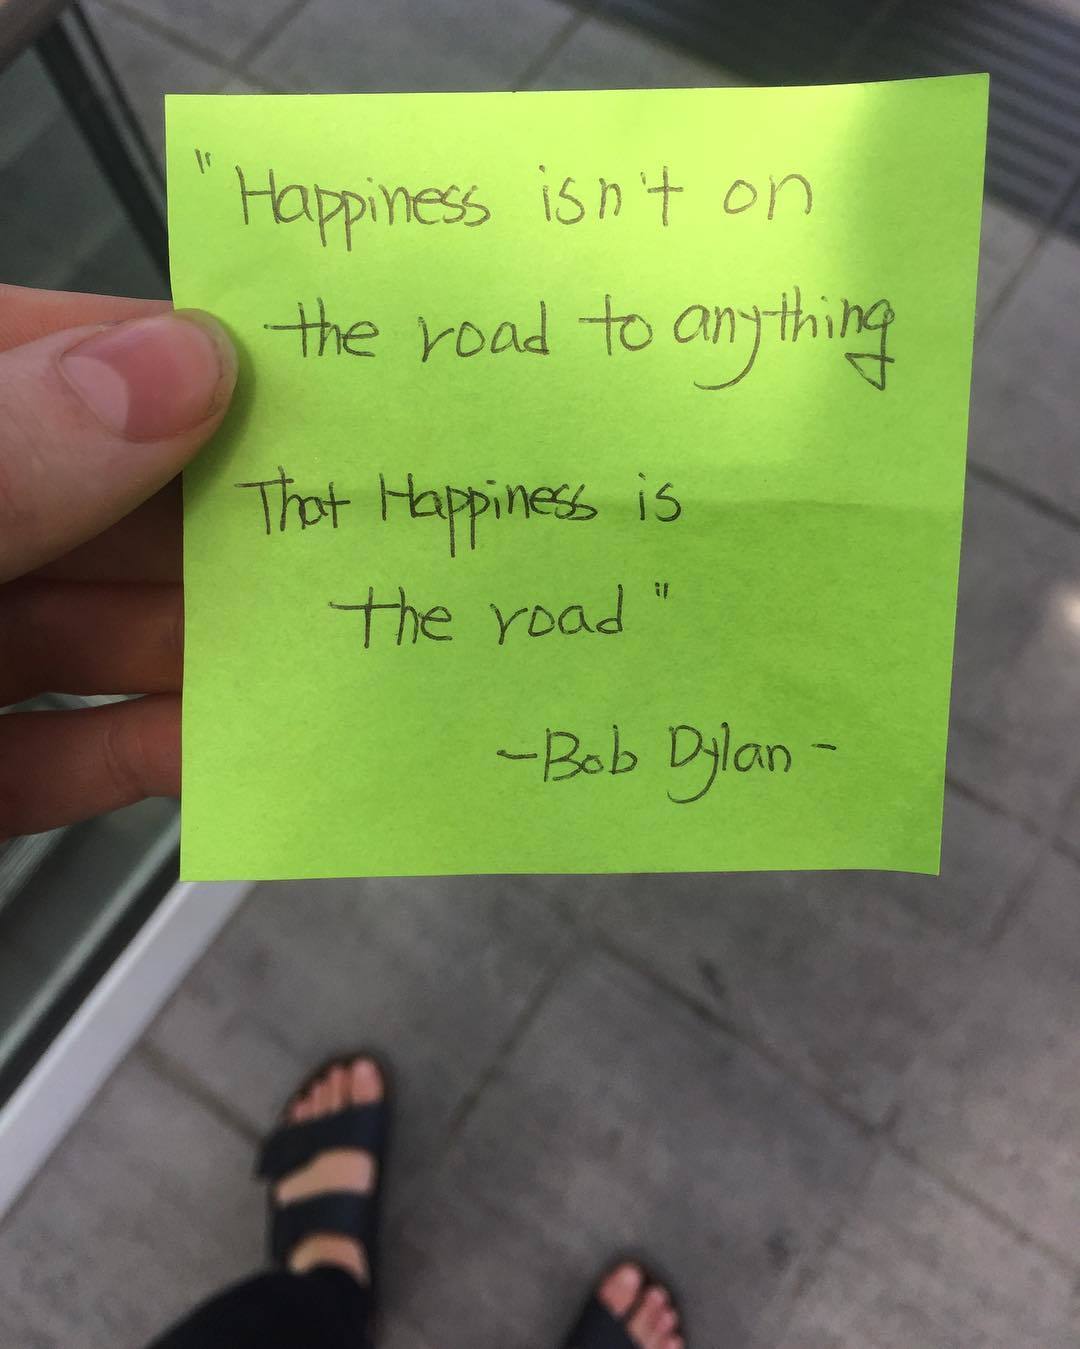 "Happiness isn't on
the road to anything
That Happiness is
the road"
-Bob Dylan-